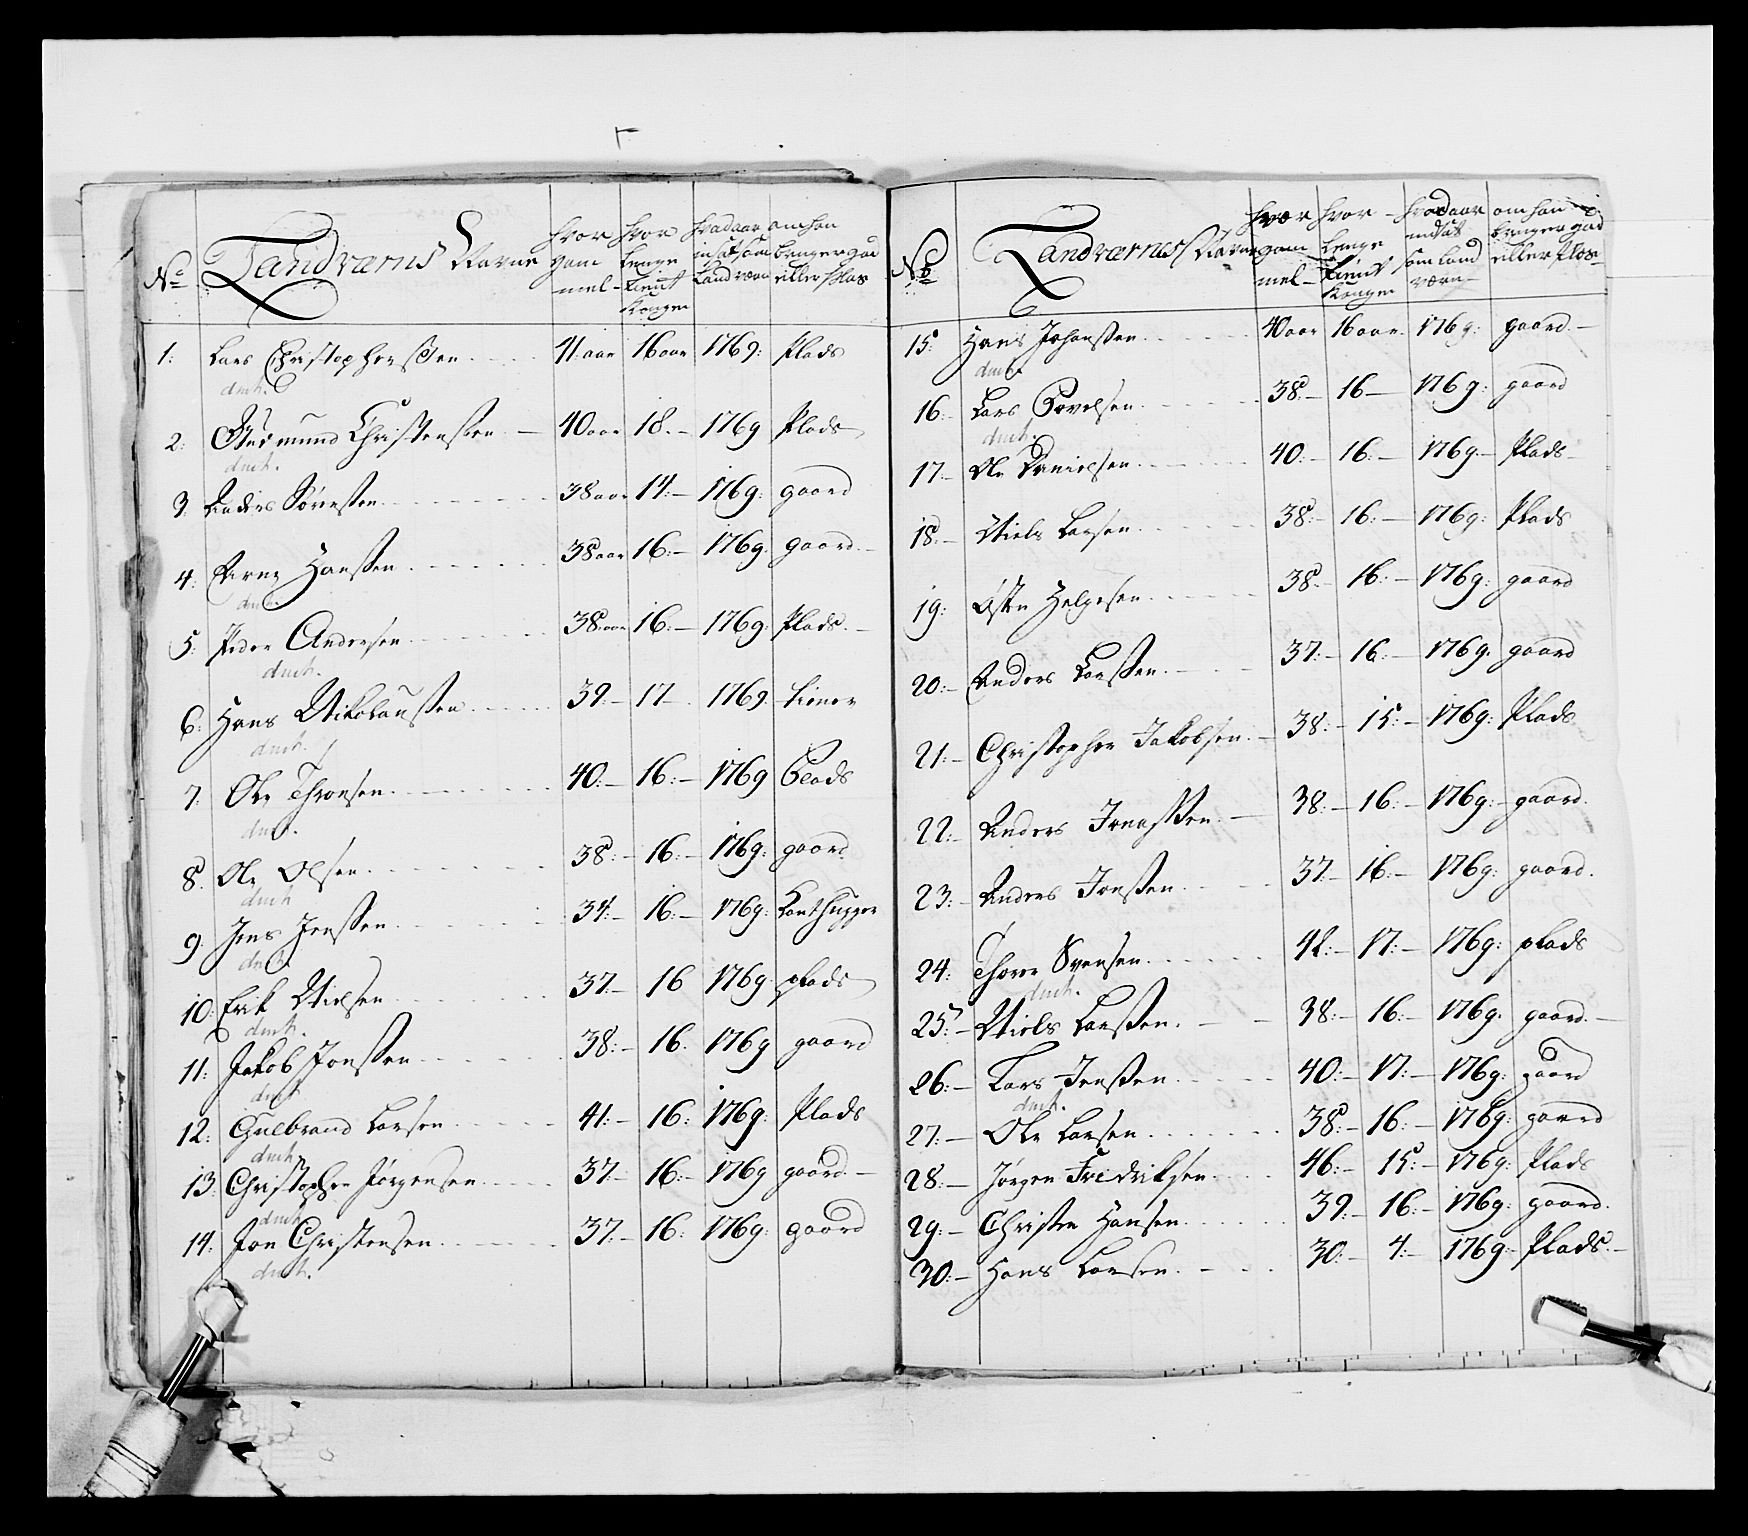 No Landværns Navne hvor gam mel hvor lenge tient kongen hvad aar insat som Land værn om han bruger gaar eller Plas
1: Lars Christophersen 41 aar 16 aar 1769: Plads
dmt.
2: Gudmund Christensen 40 aar 18.- 1769 Plads
dmt.
3: Anders Sørensen 38 aar 14:- 1769: gaard
4: Arne Hanssen 38 aar 16:- 1769: gaard
dmt.
5: Peder Andersen 38 aar 16:- 1769: Plads.
dmt.
6: Hans Nikolaussen 39:- 17- 1769: tiener
dmt.
7: Ole Thronsen 40:- 16:- 1769 Plads
dmt.
8. Ole Olsen 38:- 16:- 1769: gaard
dmt
9: Jens Jenssen 34:- 16:- 1769:
dmt.
10: Erik Nielsen 37:- 16 1769: plads
dmt.
11: Jakob Jonssen 38:- 16. 1769 gaard
dmt
12: Gulbrand Larsen 41:- 16: 1769: Plads
dmt
13: Christopher Jørgensen 37:- 16:- 1769 gaard-
dmt
14: Jon Christensen 37:- 16: 1769: gaard
dmt.
No Landværnes Navne hvor gam mel- hvor lenge tient Kongen hvad aar indsat som land værn om han bruger gad eller Plas-
15: Hans Johanssen 40 aar 16 aar. 1769: gaard-
dmt
16:- Lars Povelsen 38:- 16- 1769: gaard
dmt.
17:- Ole Danielsen 40:- 16:- 1769- Plads-
18:- Niels Larsen 38:- 16:- 1769: Plads
19: Østen Helgesen 38:- 16:- 1769: gaard
20:- Anders Larssen 37:- 16:- 1769. gaard
21:- Christopher Jakobsen 38:- 15:- 1769: Plads
22:- Anders 38:- 16:- 1769:- gaard.
23:- Anders Jonssen 37- 16:- 1769: gaard.
24: Thore Svensen 42:- 17:- 1769: plads
dmt.
25:- Niels Larssen. 38:- 16:- 1769. gaard.-
26:- Lars Jenssen 40:- 17:- 1769: gaard
dmt.
27:- Ole Larsen 38:- 16:- 1769: gaard
28:- Jørgen Fredriksen 46:- 15:- 1769: Plads
29:- Christen Hansen 39:- 16:- 1769: gaard.
30:- Hans Larsen. 30:- 4:- 1769:- Plads.-